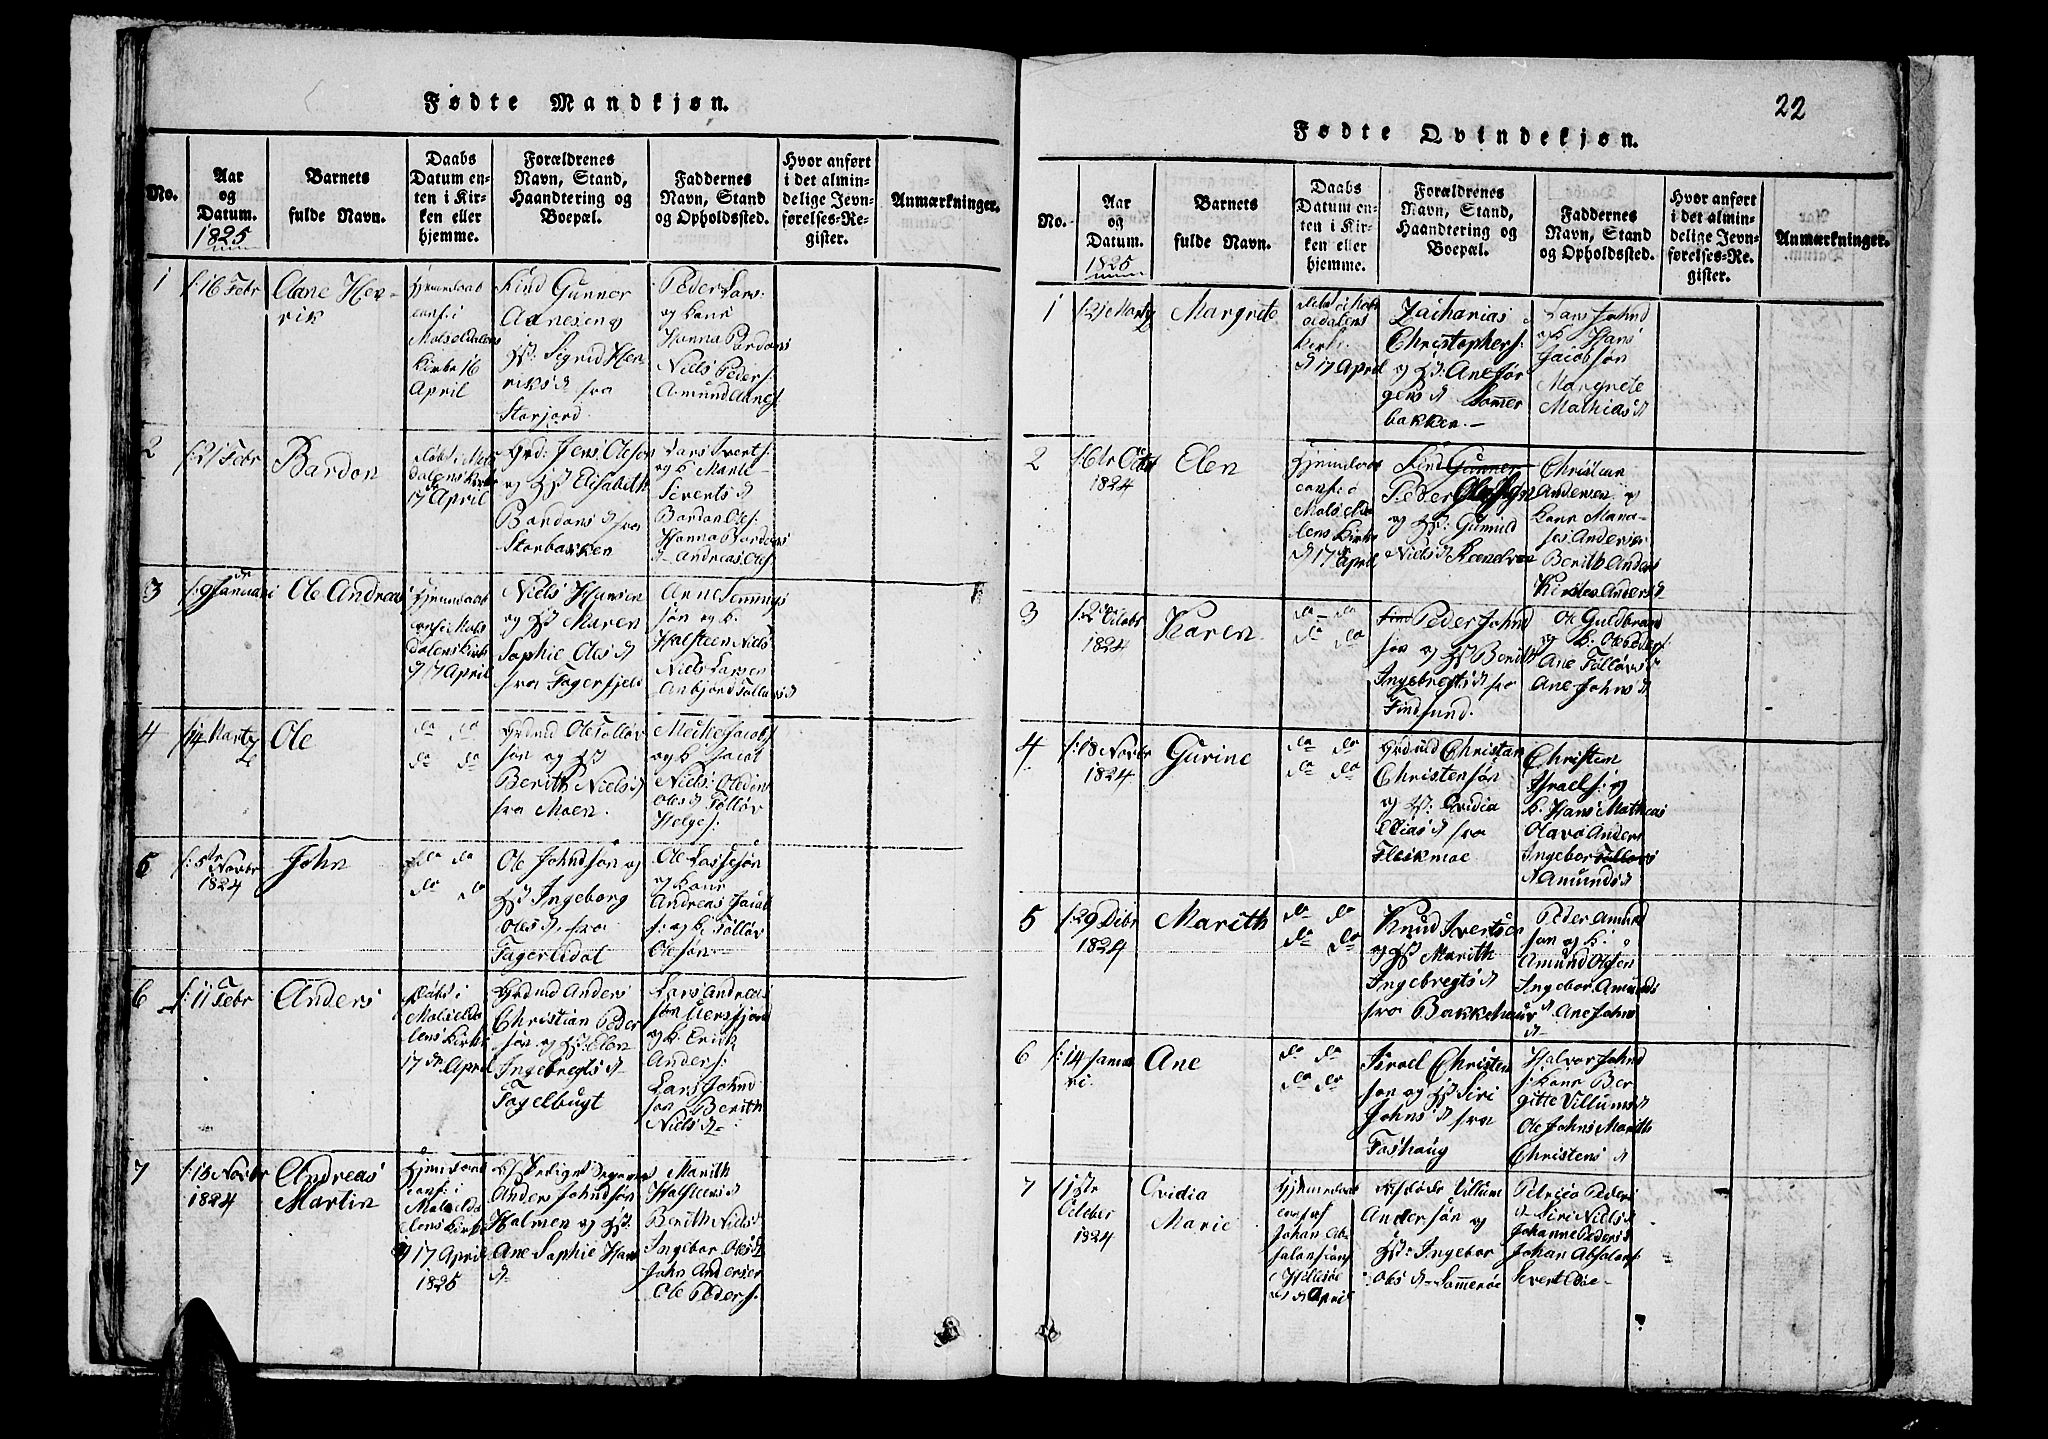 Fødte Mandkjøn.
No.
Aar
og
Datum.
1825
Barnets
fulde Navn.
Daabs
Datum en-
ten i Kir-
ken eller
hjemme.
Forældrenes
Navn, Stand,
Haandtering og
Boepæl.
Faddernes
Navn, Stand
og Opholdssted.
Hvor anført
i det almin-
delige Jevn-
førelses-Re-
gister.
Anmærkninger.
1
f: 16 Febr
Hen-
rik
Hjemmedøbt
conf: i
Kirke 16
April
Find Gunner
Arnesen og
H: Sigrid Hen
riks d fra
Storjord.
Peder Lars:
og Kone
Hanna Bardons
Niels Peders:
Amund Arnes:
2
f: 21 Febr
Bardon
døbt i Mols
dalens Kirke
17 April
Jens Olesen
og H Elisabeth
Bardons d fra
Storbakken
Lars Iverts:
og K Marte
Siverts d
Bardon Oles:
Hanna Bardons
d Andreas Ols
3
f: 9de Januari
Ole Andreas
Hjemmedøbt
conf: i Mols
dalens Kirke
d 17 April
Niels Hansen
og H Maren
Sophie Oles d
fra Fagerfjeld
Arne
søn og K:
Halsteen Niels
Niels Larsen
Anbjørd Tollevs d
4
f 14 Martz
Ole
do do
do do
Ole Tollev
søn og H
Berith Niels d
fra Moen.
Jacobs
og K Jacob
Niels: Ole
Oles d Tollev
Helges:
5
f: 5te Novbr
1824
John
do do
do do
Ole Johndsøn og
H Ingeborg
Oles d fra
Fagerlidal
Ole Lassesøn
og Kone
Andreas Jacob
s: og K Tollev
Olesøn
6
f: 11 Febr
Anders
døbt i
Molselvda
lens Kirke
17 de April
Anders
Christian Peder
søn og H: Elen
Ingebregts d
Fagelbugt
Lars Andreas
søn
og K: Erick
Anders:
Lars Johnd
søn Berith
Niels d
7
f: 13 Novbr
1824
Andreas
Martin
Hjemmedøbt
conf: i
Molselvda
lens Kirke
d 17 April
1825
Anders Johndsøn
Holmen og H:
Ane Sophie Hans
d
Marith
Halsteens d
Berith Niels d
Ingebor Oles d
John Andersen
Ole Peders:
22
Fødte Qvindekjøn.
No.
Aar
og
Datum.
1825
Barnets
fulde Navn.
Daabs
Datum en-
ten i Kir-
ken eller
hjemme.
Forældrenes
Navn, Stand,
Haandtering og
Boepæl.
Faddernes
Navn, Stand
og Opholdssted.
Hvor anført
i det almin-
delige Jevn-
førelses-Re-
gister.
Anmærkninger.
1
f: 21 Martz
Margrete
døbt i Mols
dalens
Kirke
d 17 April
Zacharias
Christophers:
og H: Ane Jør
gens d Sommer
bakken
Lars Johnd
og K Hans
Jacobsøn
Margrete
Mathias d
2
f 6te Octbr
1824
Elen
Hjemmedøbt
conf: i
Molselvda
lens Kirke
d 17 de April
Find Gunner
Peder
og H: Gunild
Niels d
Christian
Andersen og
Kone Maria
Andersen
Berith Anders
Kirsten Anders d
3
f: 2den Octobr
1824
Karen
do do
do do
Find Peder Johnd
søn og H Berith
Ingebregts d fra
Findsund.
Ole Guldbrand
og K: Ole Peders:
Ane Tollevs d
Ane Johns d
4
f: 18 Novbr
1824
Gurine
do do
do do
Christian
Christensøn
og H: Ovidia
Elias d fra
Fleskmoe
Christen
Israels: og
K: Hans Mathias
Olava Anders
Ingebor Tollevs
Amunds d
5
f: 29 Debr
1824
Marith
do do
do do
Knud Ivertsen
og H Marith
Ingebregts d
fra Bakkehaug
Peder Amund
søn og K:
Amund Olesen
Ingebor Amunds
d Ane Johns
d
6
f: 14 Janua
ri
Ane
do do
do do
Israel Christen
søn og H Siri
Johns d fra
Foshaug
Halvor Johnd
s: Kone Ber
gitte Villums d
Ole Johns Marith
Christens d
7
f 1ste
October
1824
Ovidia
Marie
Hjemmedøbt
conf af
Johan Ab
salonsøn
i Hillesøe
d April
Villum
Andersøn og
H: Ingebor
Ols d Sommerøe
Peders
d Siri Niels d
Johanne Peders
Johan Absalons:
Sivert